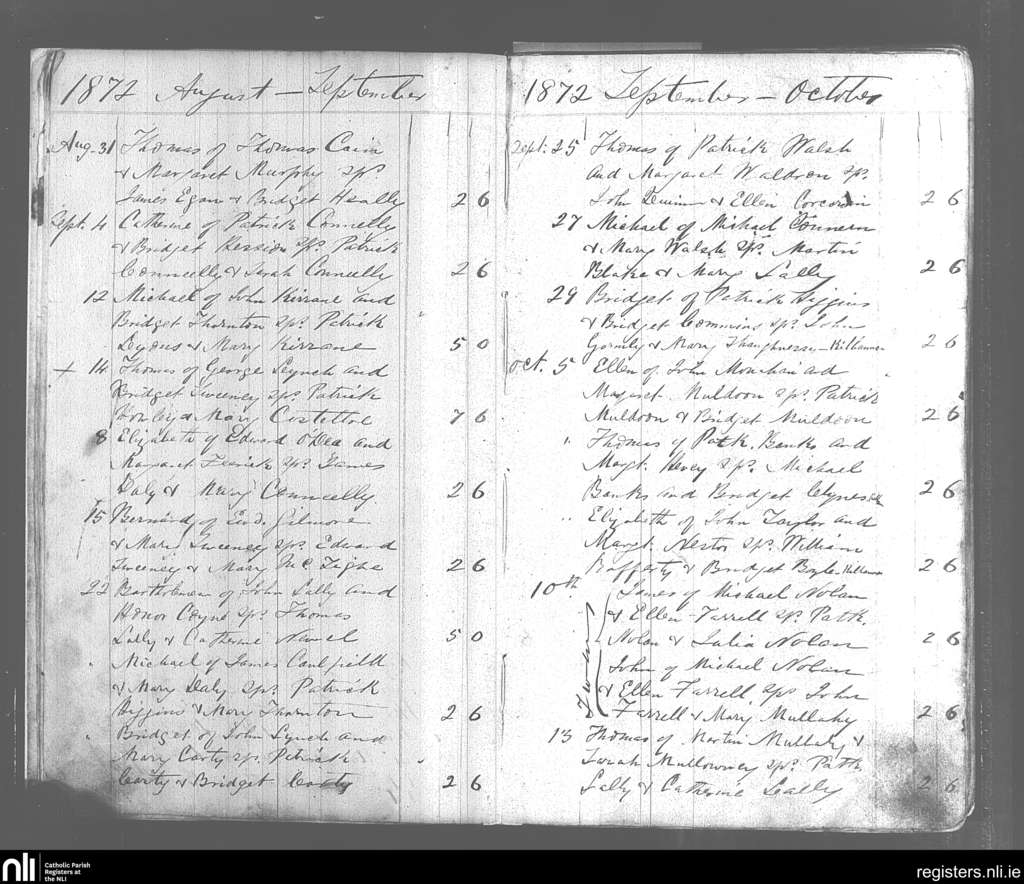 1872 August – September
Aug. 31 Thomas of Thomas Cain
& Margaret Murphy Sps
James Egan & Bridget Heally 2 6
Sept. 4 Catherine of Patrick Connelly
& Bridget Kession Sps. Patrick
Connelly & Sarah Connelly 2 6
12 Michael of John Kirrane and
Bridget Thornton Sps. Patrick
Lyons & Mary Kirrane 5 0
+ 14 Thomas of George Lynch and
Bridget Sweeney Sps. Patrick
& Mary Costelloe 7 6
8 Elizabeth of Edward O'Dea and
Margaret Sps. James
Daly & Mary Connelly 2 6
15 Bernard of Ed. Gilmore
& Mary Sweeney Sps. Edward
Sweeney & Mary McTighe 2 6
22 Bartholomew of John Lally and
Honor Coyne Sps. Thomas
Lally & Catherine 5 0
" Michael of James Caulfield
& Mary Daly Sps. Patrick
Higgins & Mary Thornton 2 6
" Bridget of John Lynch and
Mary Carty Sps. Patrick
Carty & Bridget Carty 2 6
1872 September – October
Sept. 25 Thomas of Patrick Walsh
and Margaret Waldron Sps.
John & Ellen Corcoran 2 6
27 Michael of Michael
& Mary Walsh Sps. Martin
Blake & Mary Lally 2 6
29 Bridget of Patrick Higgins
& Bridget Commins Sps. John
Gormly & Mary 2 6
Oct. 5 Ellen of John Monehan and
Margaret Muldoon Sps. Patrick
Muldoon & Bridget Muldoon 2 6
" Thomas of Patk. Banks and
Margt. Hevey Sps. Michael
Banks and Bridget Clynes 2 6
" Elizabeth of John Taylor and
Margt. Nestor Sps. William
Rafferty & Bridget Boyle 2 6
10th James of Michael Nolan
& Ellen Farrell Sps. Patk.
Nolan & Julia Nolan 2 6
Twins
John of Michael Nolan
& Ellen Farrell Sps John
Farrell & Mary Mullahy 2 6
13 Thomas of Martin Mullahy &
Sarah Mullowney Sps. Patk
Lally & Catherine Lally 2 6
nli
Catholic Parish
Registers at
the NLI
registers.nli.ie